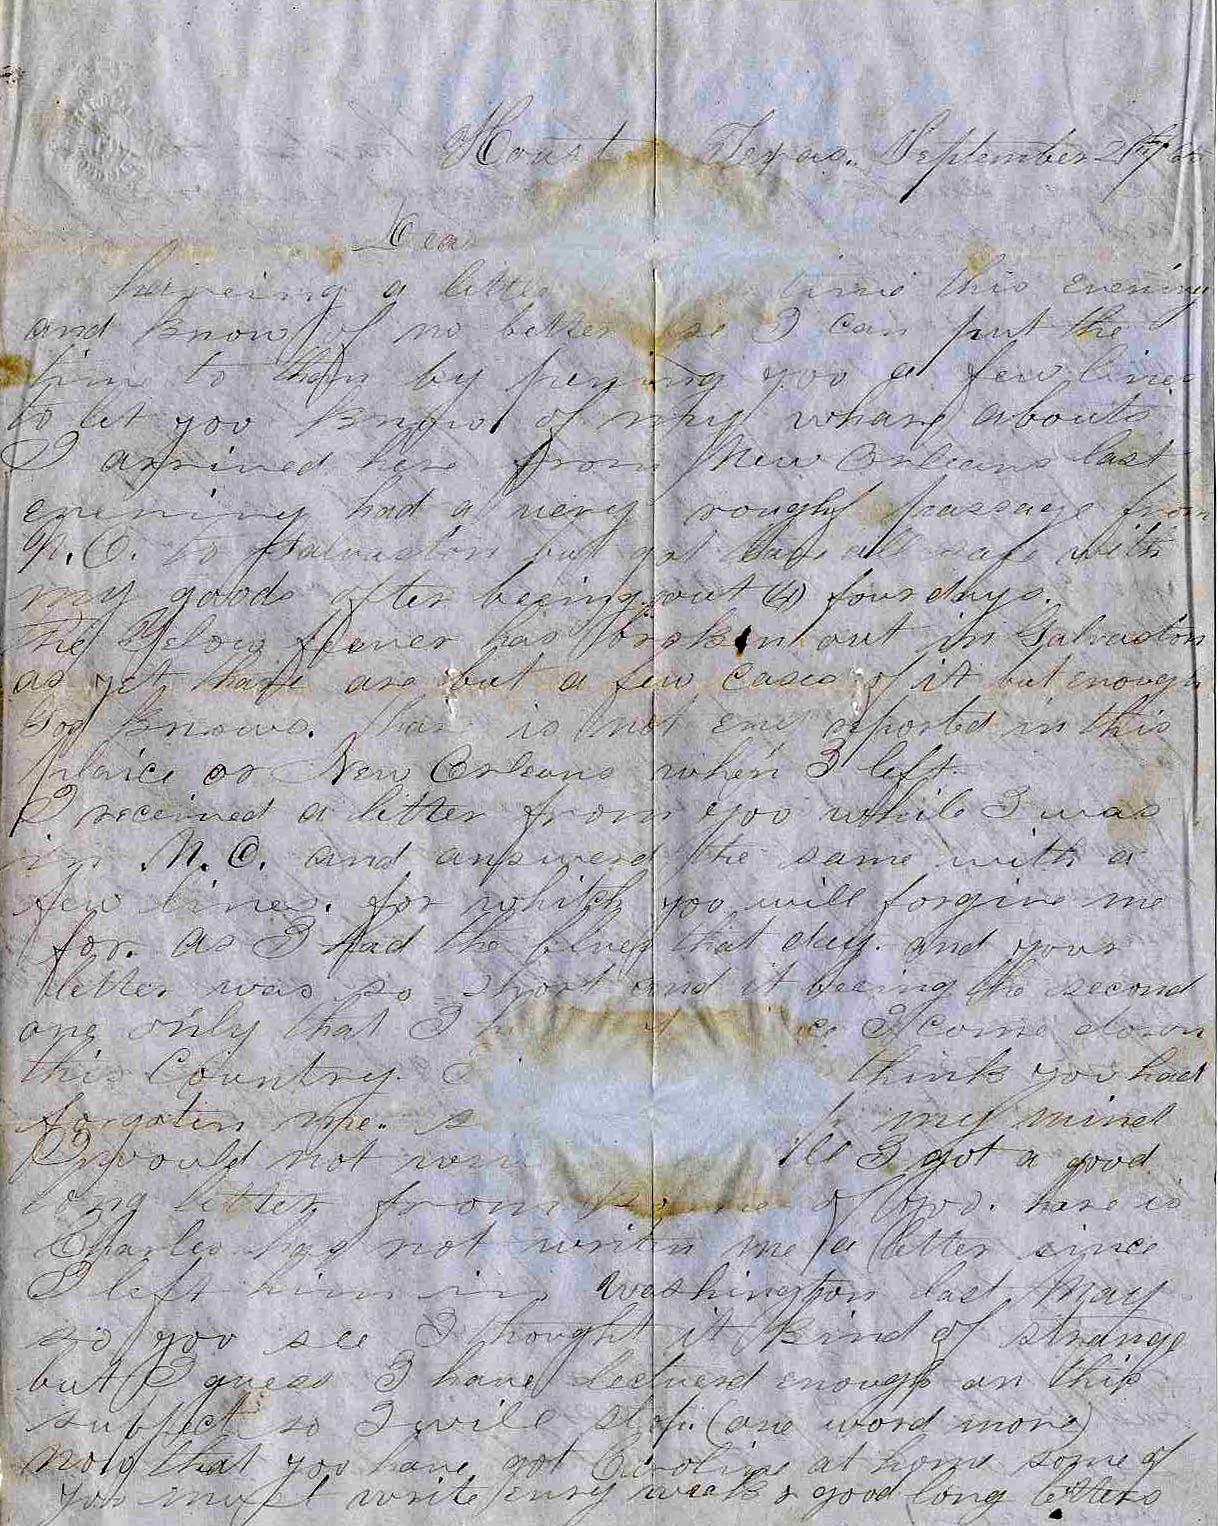 Houst Texas. September
Dear
haveing a little time this evening
and know of no better use I can put the
time to than by pening you a few lines
to let you know of my whare abouts
I arrived here from New Orleans last
evening had a very rough passage from
N.O. to Galvaston but got all safe with
my goods after beeing out (4) four days.
the Yelow feever has broken out in Galvaston
as yet thare are but a few cases of it but enough
God knows. thare is not one reported in this
plaice or New Orleans when I left
I received a letter from you while I was
in N.O. and answerd the same with a
few lines. for whitch you will forgive me
for. as I had the blues that day. and your
letter was so short and it beeing the second
one only that I I come down
this Country. I think you had
forgoten me. my mind
I would not I got a good
long letter from some of you. hare is
Charles has not writen me a letter since
I left him in Washington last May
so you see I thought it kind of strange
but I guess I have lectuerd enough on this
subject so I will stop. (one word more)
now that you have got Caroline at home some of
you must write evry week & good long letters